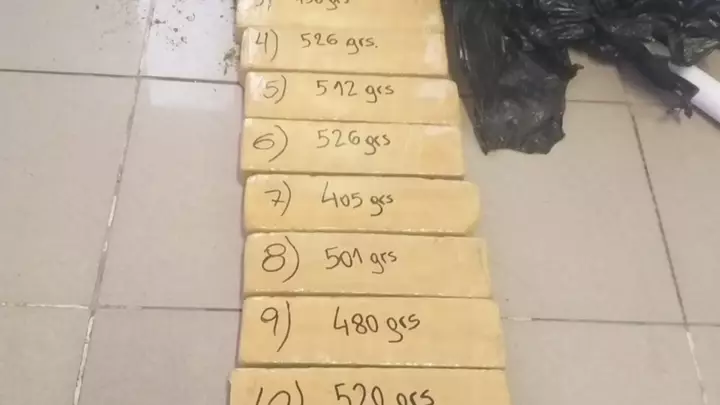 4) 526 grs.
5) 512 grs
6) 526 grs
7) 405 grs
8) 501 grs
9) 480 grs
10) 520 grs